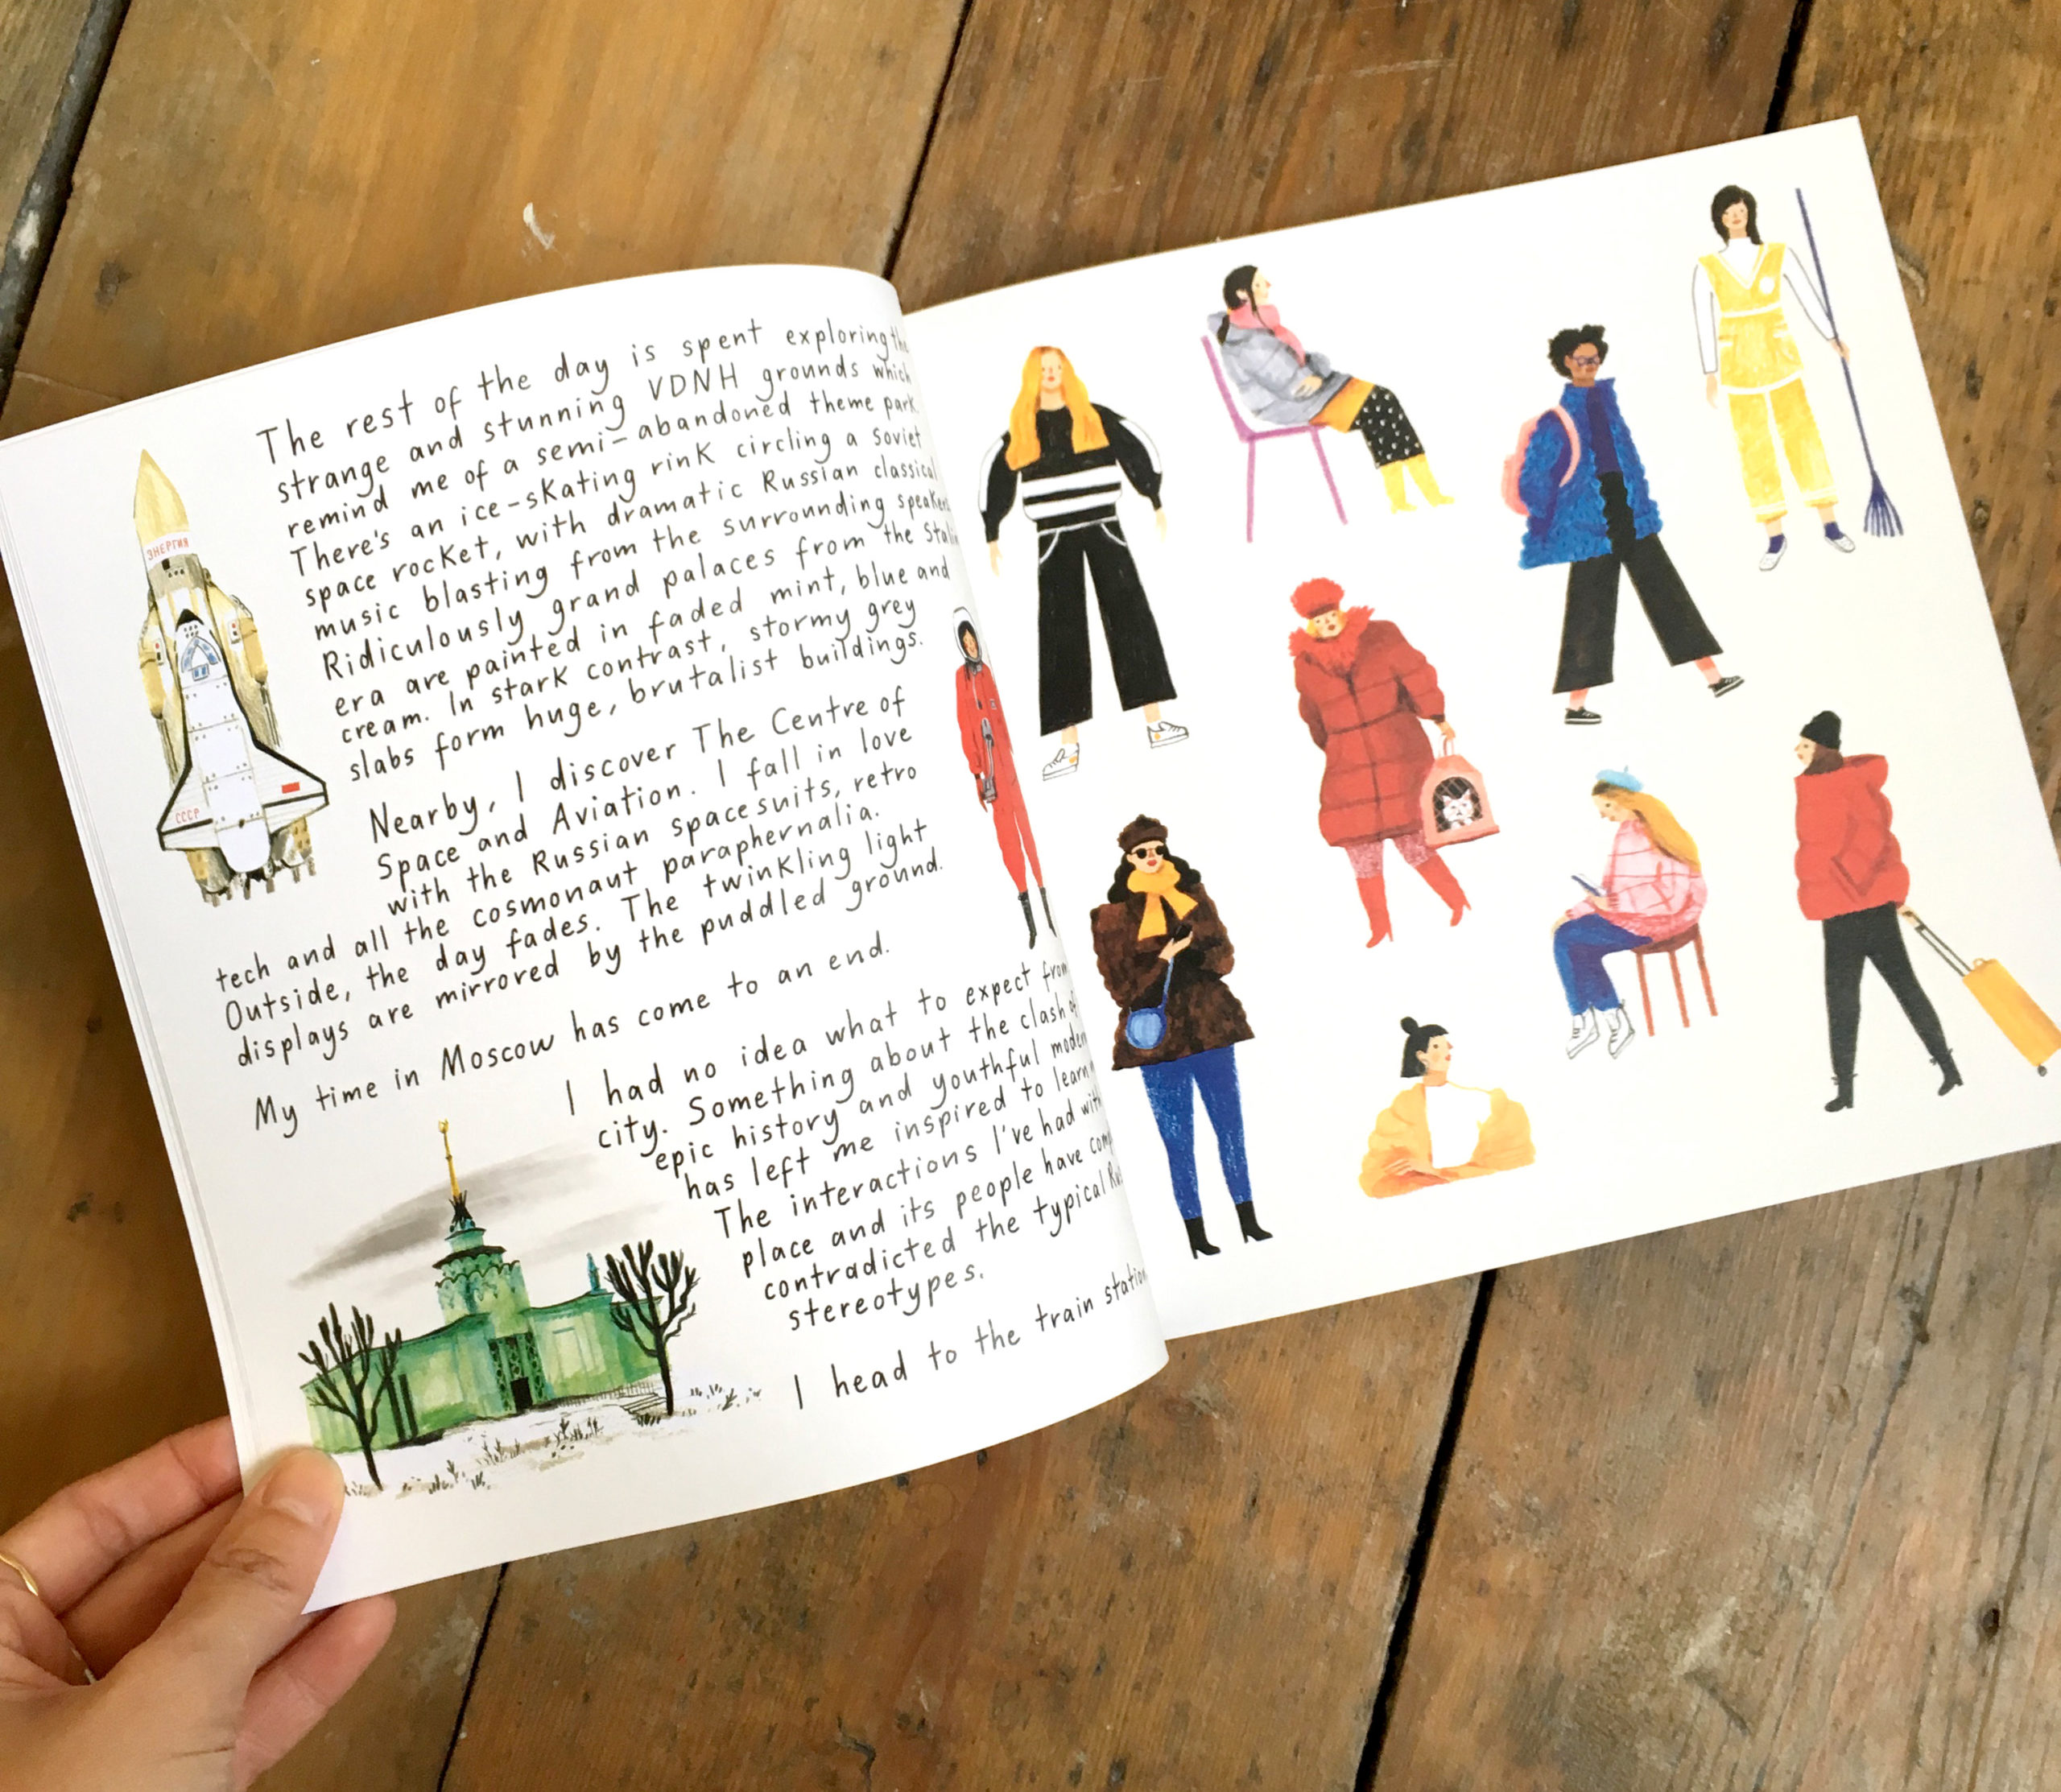 The rest of the day is spent exploring the
strange and stunning VDNH grounds which
remind me of a semi-abandoned theme park.
There's an ice-skating rink circling a Soviet
space rocket, with dramatic Russian classical
music blasting from the surrounding speakers
Ridiculously grand palaces from the
era are painted in faded mint, blue and
cream. In stark contrast, stormy grey
slabs form huge, brutalist buildings.
Nearby, I discover The Centre of
Space and Aviation. I fall in love
with the Russian spacesuits, retro
tech and all the cosmonaut paraphernalia.
Outside, the day fades. The twinkling light
displays are mirrored by the puddled ground.
My time in Moscow has come to an end.
I had no idea what to expect from
city. Something about the clash of
epic history and youthful modern
has left me inspired to learn
The interactions I've had with
place and its people have
contradicted the typical
stereotypes.
I head to the train station
ЭНЕРГИЯ
СССР